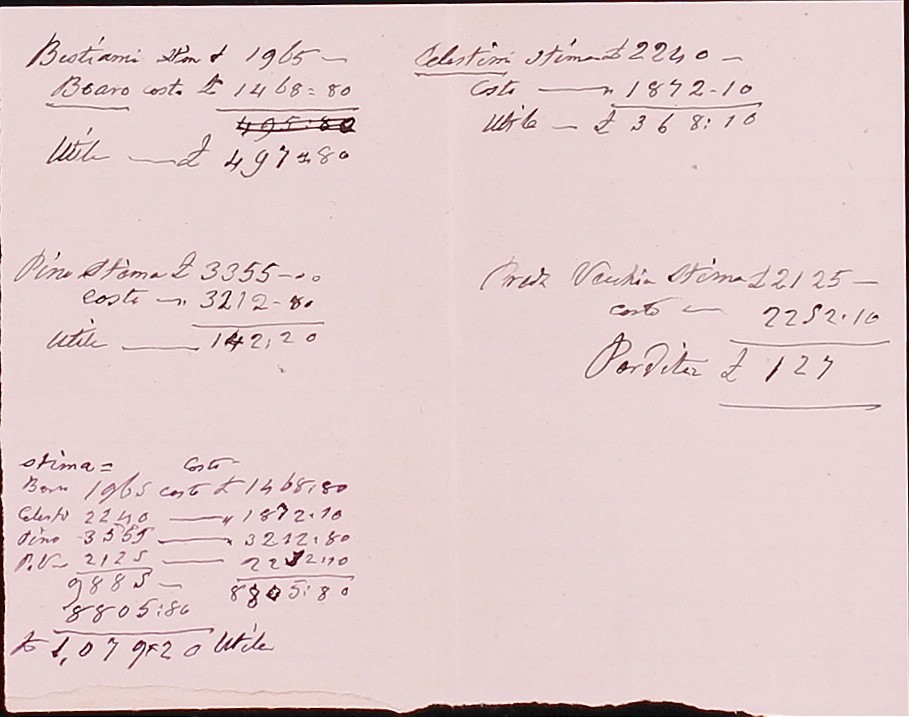 Bestiami Stim £ 1965 —
Boaro costo £ 1468=80
495:80
Utile — £ 497=80
Celestini stima £ 2240 —
Costo — " 1872-10
Utile — £ 368:10
Pino Stima £ 3355-..
costo — ". 3212-80
Utile — 142,20
Vecchia Stima £ 2125 —
costo — 2252.10
Perdita £ 127
stima = Costo
Boaro 1965 costo £ 1468,80
Celesti 2240 — " 1872.10
Pino 3555 — " 3212.80
P.V— 2125 — 2252.10
9885 — 8805:80
8805:80
£ 1,079=20 Utile